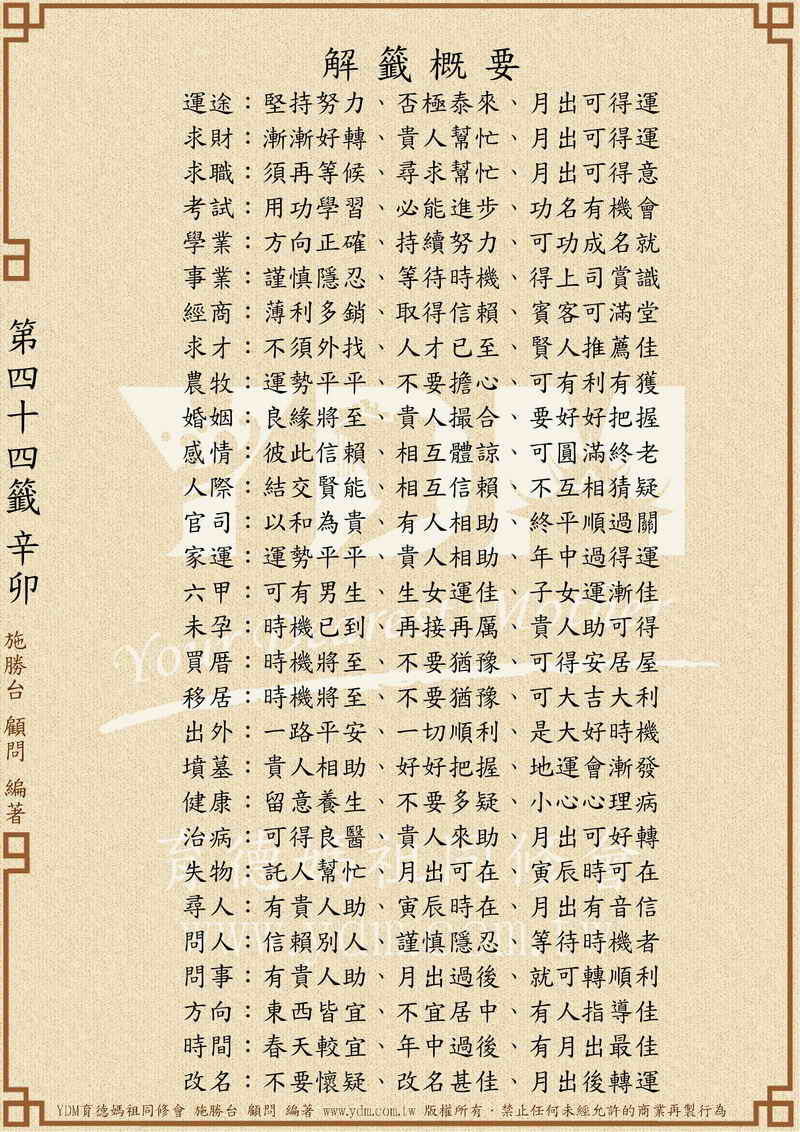 解籤概要
運途：堅持努力、否極泰來、月出可得運
求財：漸漸好轉、貴人幫忙、月出可得運
求職：須再等候、尋求幫忙、月出可得意
考試：用功學習、必能進步、功名有機會
學業：方向正確、持續努力、可功成名就
事業：謹慎隱忍、等待時機、得上司賞識
經商：薄利多銷、取得信賴、賓客可滿堂
求才：不須外找、人才已至、賢人推薦佳
農牧：運勢平平、不要擔心、可有利有獲
婚姻：良緣將至、貴人撮合、要好好把握
感情：彼此信賴、相互體諒、可圓滿終老
人際：結交賢能、相互信賴、不互相猜疑
官司：以和為貴、有人相助、終平順過關
家運：運勢平平、貴人相助、年中過得運
六甲：可有男生、生女運佳、子女運漸佳
未孕：時機已到、再接再厲、貴人助可得
買厝：時機將至、不要猶豫、可得安居屋
移居：時機將至、不要猶豫、可大吉大利
出外：一路平安、一切順利、是大好時機
墳墓：貴人相助、好好把握、地運會漸發
健康：留意養生、不要多疑、小心心理病
治病：可得良醫、貴人來助、月出可好轉
失物：託人幫忙、月出可在、寅辰時可在
尋人：有貴人助、寅辰時在、月出有音信
問人：信賴別人、謹慎隱忍、等待時機者
問事：有貴人助、月出過後、就可轉順利
方向：東西皆宜、不宜居中、有人指導佳
時間：春天較宜、年中過後、有月出最佳
改名：不要懷疑、改名甚佳、月出後轉運
第四十四籤 辛卯
施勝台 顧問 編著
YDM
Your Dearest Mother
育德媽祖同修會
www.ydm.com.tw
YDM育德媽祖同修會 施勝台 顧問 編著 www.ydm.com.tw 版權所有．禁止任何未經允許的商業再製行為